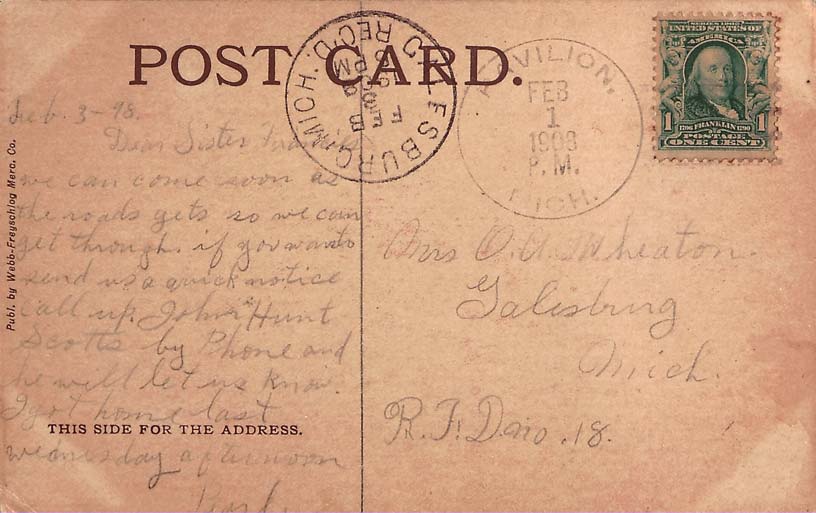 POST CARD.
GALESBURG MICH. REC'D.
FEB 3
PM
PAVILION.
FEB
1
1908
P.M.
MICH.
SERIES 1902
UNITED STATES OF
AMERICA
1 1790 FRANKLIN 1
POSTAGE
ONE CENT
Publ. by Webb-Freyschlag Merc. Co.
Feb. 3-98.
Dear Sister
we can come soon as
the roads gets so we can
get through. if you wants
send us a quick notice
call up. John Hunt
Scotts by Phone and
he will let us know.
I got home last
THIS SIDE FOR THE ADDRESS.
wednesday afternoon
Mrs O.A. Wheaton.
Galesburg
Mich.
R.F.D no .18.